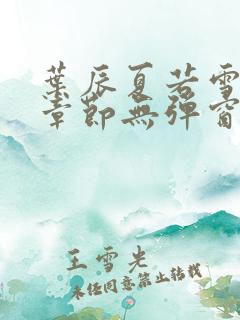 葉辰夏若雪
章節無彈窗
王雪先
未經同意禁止轉載